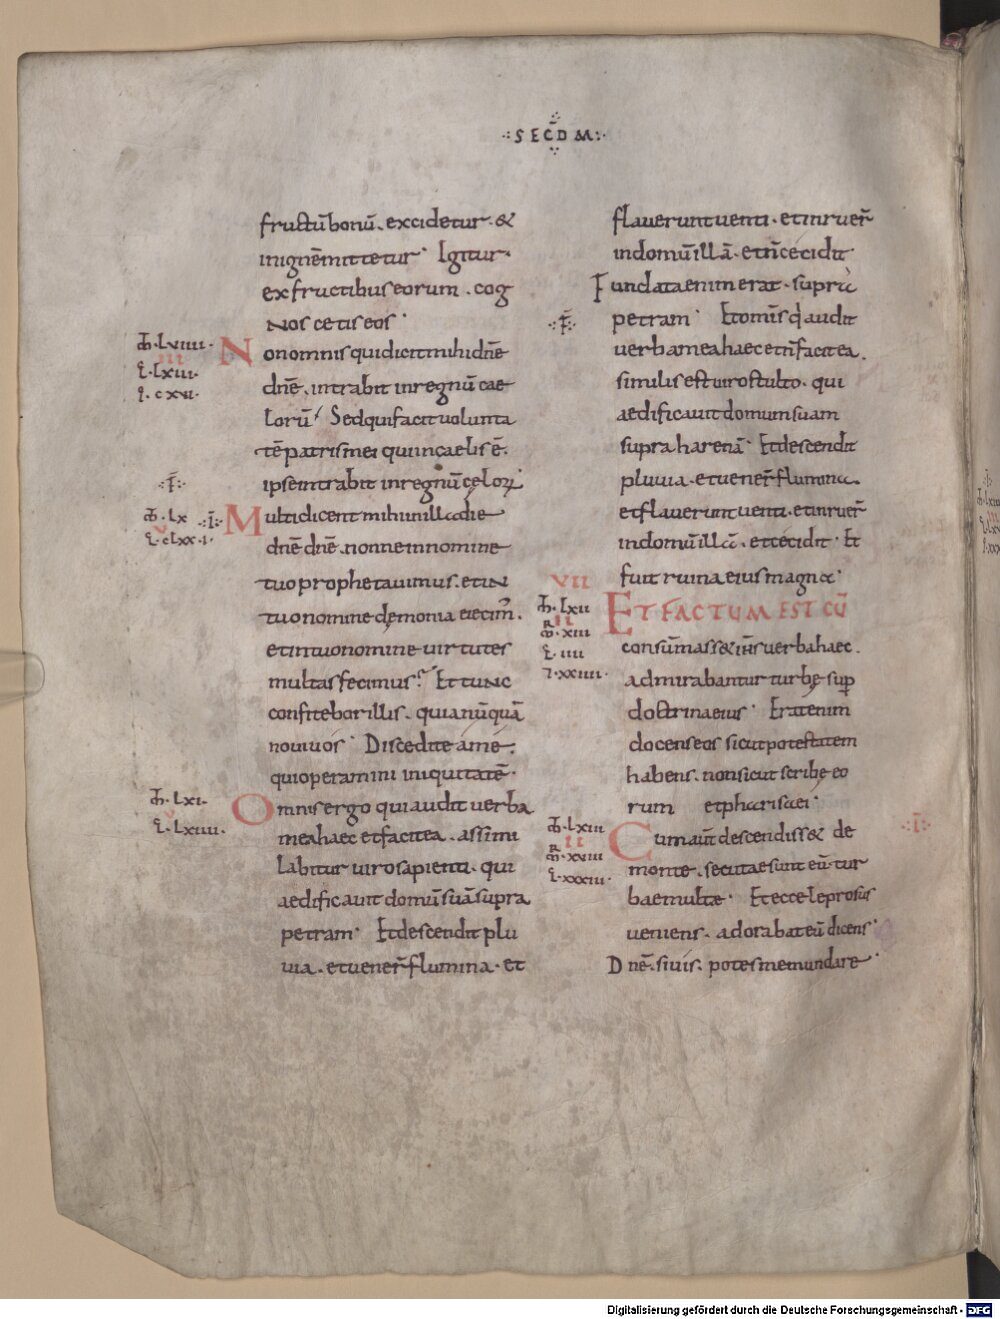 ·SEC̄D M·
fructū bonū. excidetur. &
in ignem̄ mittetur· Igitur·
ex fructibus eorum. cog
noscetis eos·
Non omnis qui dicit mihi dn̄e
dn̄e. intrabit in regnū cae
lorū. Sed qui facit uolunta
tē patris mei qui in caelis ē.
ipse intrabit in regnū cęloꝝ·
Multi dicent mihi in illa die
dn̄e dn̄e. nonne in nomine
tuo prophetauimus. et in
tuo nomine dęmonia eiecim̄.
et in tuo nomine uirtutes
multas fecimus? Et tunc
confitebor illis. quia nūquā
noui uos· Discedite á mé.
qui operamini iniquitatē·
Omnis ergo qui audit uerba
mea haec et facit ea. assimi
labitur uiro sapienti. qui
aedificauit domū suā supra
petram· Et descendit plu
uia. et uener̄ flumina. et
ꝳ·LVIIII·
III
L·LXIII·
I·CXVI·
·I·
ꝳ·LX ·I·
V
L·CLXX·I·
ꝳ·LXI·
V
L·LXIIII·
flauerunt uenti. et inruer̄
in domū illā. et n̄ cecidit·
Fundata enim erat. supra
petram· Et om̄is q̇ audit
uerba mea haec et n̄ facit ea.
similis est uiro stulto. qui
aedificauit domum suam
supra harenā· Et descendit
pluuia. et uener̄ flumina.
et flauerunt uenti. et inruer̄
in domū illā. et cecidit· Et
fuit ruina eius magna·
ET FACTUM EST CŪ
consūmass& ih̄s uerba haec.
admirabantur turbę sup̄
doctrina eius· Erat enim
docens eos sicut potestatem
habens. non sicut scribę eo
rum et pharisaei·
Cum aūt descendiss& de
monte. secutae sunt eū. tur
bae multae· Et ecce leprosus
ueniens. adorabat eū dicens·
Dn̄e. si uis. potes me mundare·
·I·
VII
ꝳ·LXII
II
R
ꝳ·XIII
L·IIII
I·XXIIII·
ꝳ·LXIII
II
R
ꝳ·XVIII
L·XXXIII·
·I·
Digitalisierung gefördert durch die Deutsche Forschungsgemeinschaft - DFG